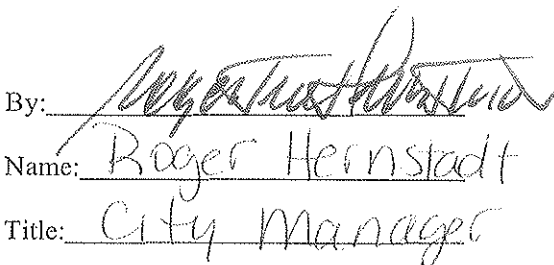 By:
Name: Roger Hernstadt
Title: City Manager